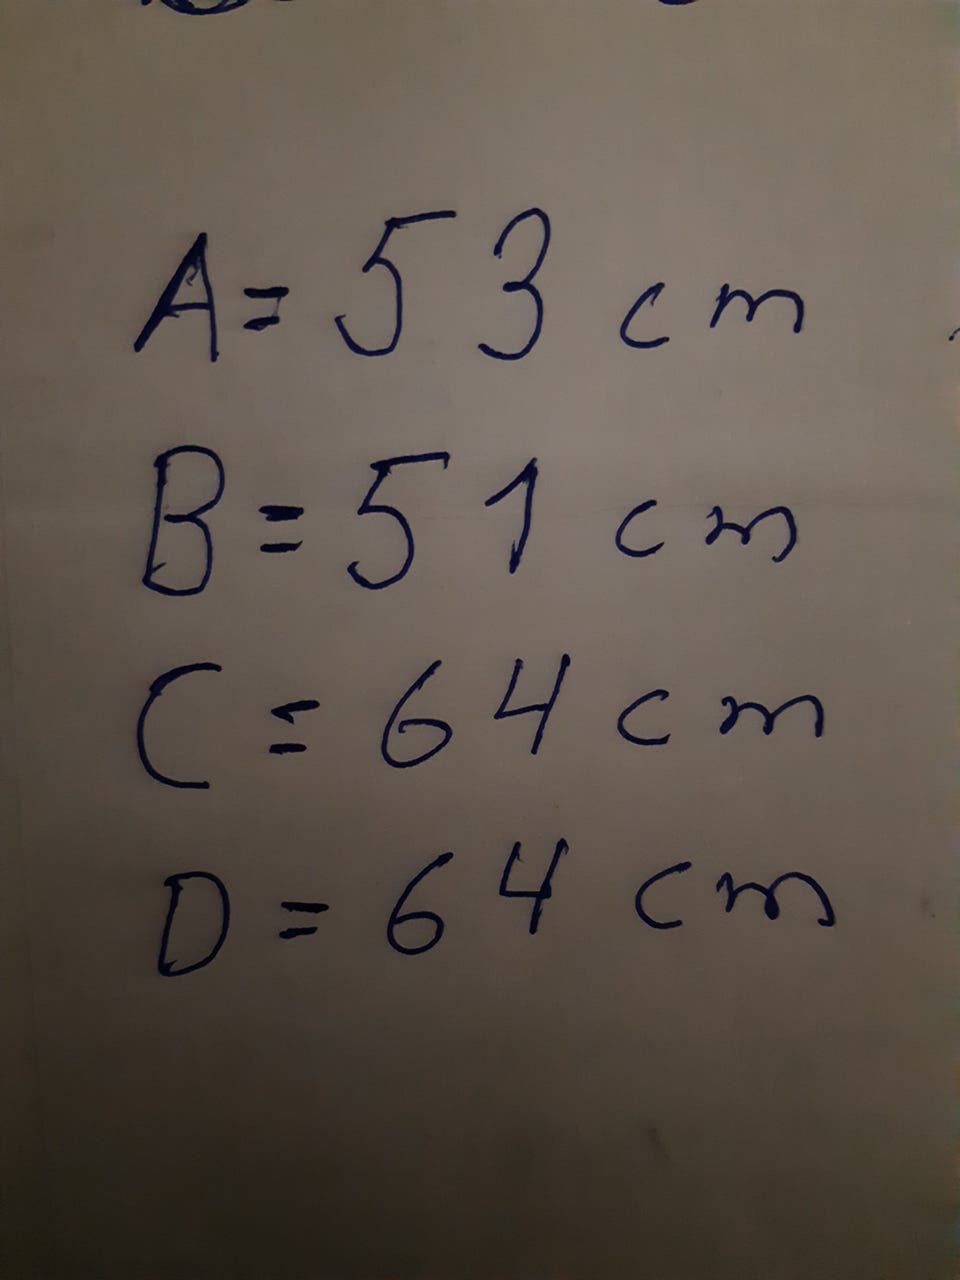 A = 53 cm
B = 51 cm
C = 64 cm
D = 64 cm